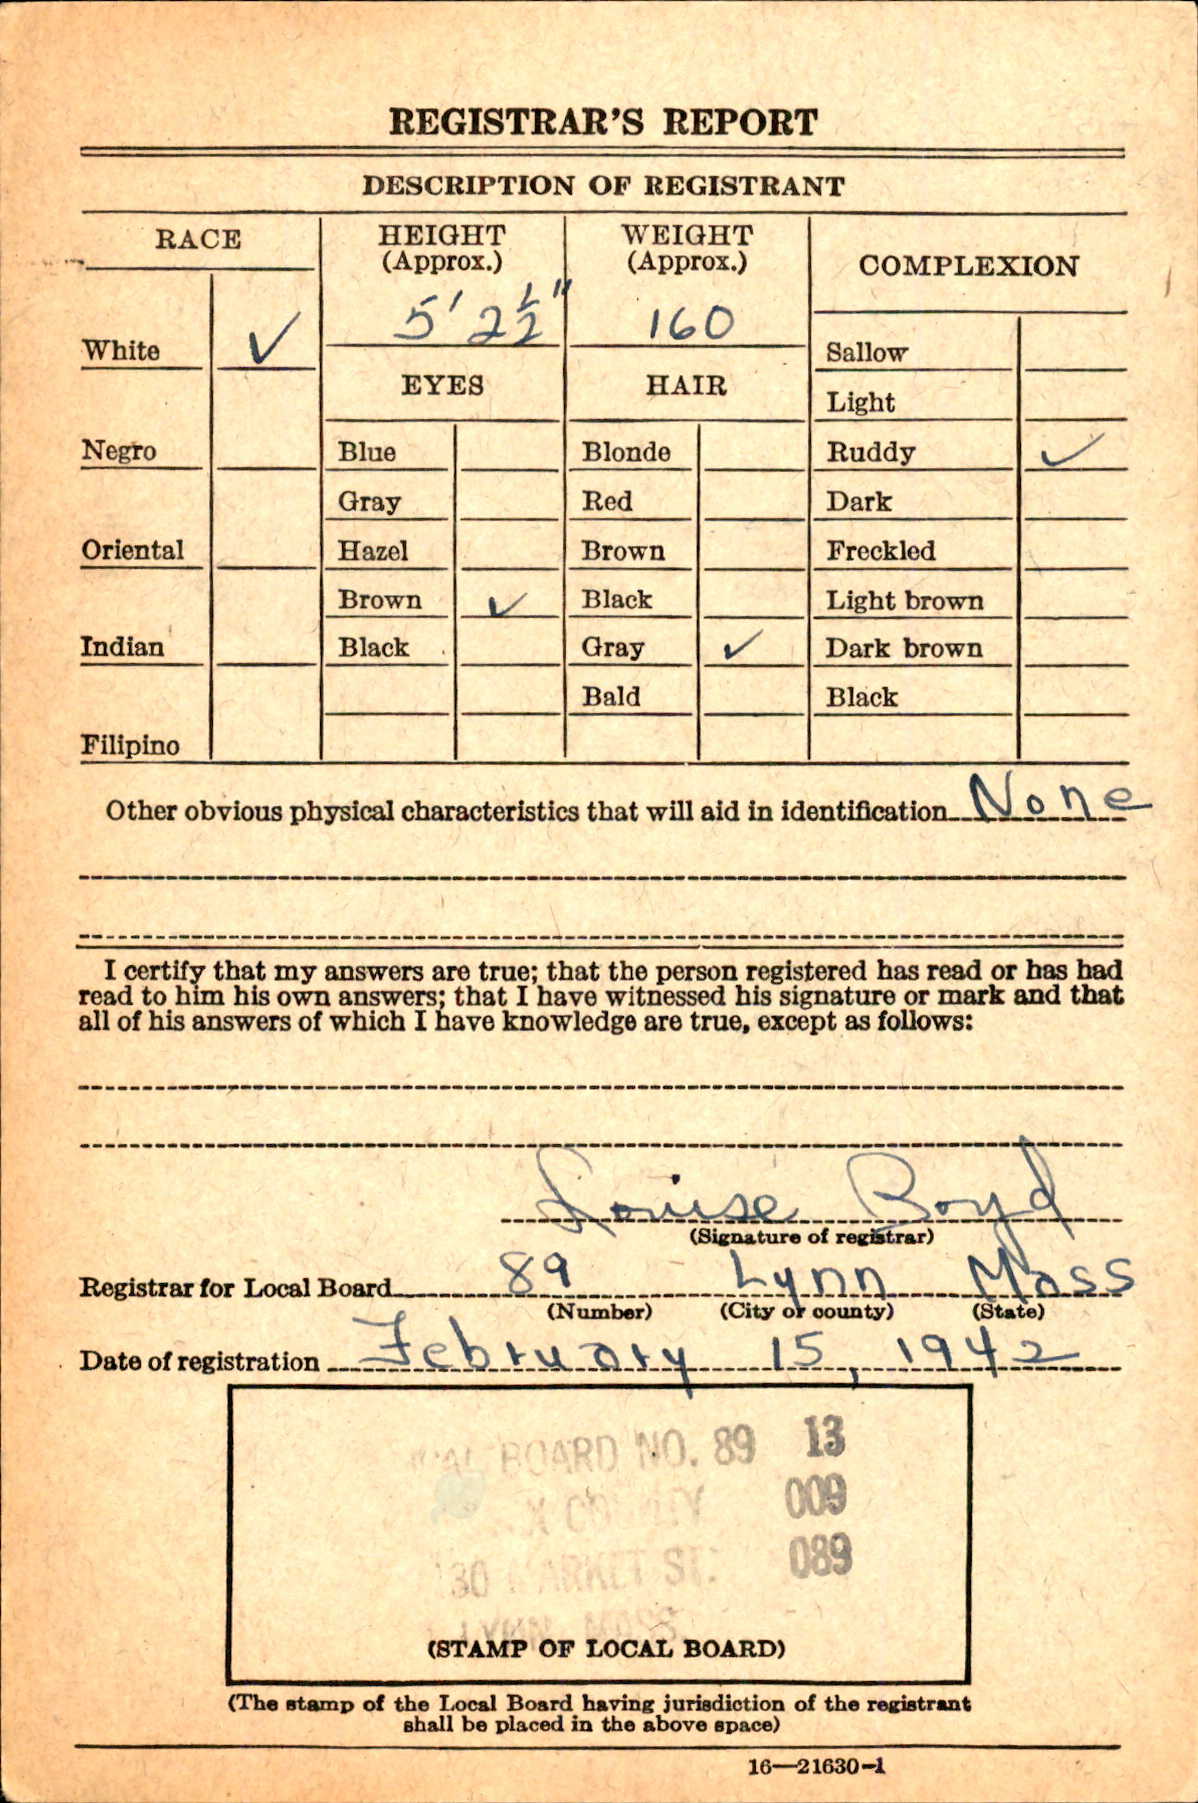 REGISTRAR'S REPORT
DESCRIPTION OF REGISTRANT
RACE HEIGHT (Approx.) WEIGHT (Approx.) COMPLEXION
5' 2 1/2" 160
White ✓ Sallow
EYES HAIR
Light
Negro Blue Blonde Ruddy ✓
Gray Red Dark
Oriental Hazel Brown Freckled
Brown ✓ Black Light brown
Indian Black Gray ✓ Dark brown
Bald Black
Filipino
Other obvious physical characteristics that will aid in identification None
I certify that my answers are true; that the person registered has read or has had
read to him his own answers; that I have witnessed his signature or mark and that
all of his answers of which I have knowledge are true, except as follows:
Louise Boyd
(Signature of registrar)
Registrar for Local Board 89 Lynn Mass
(Number) (City or county) (State)
Date of registration February 15, 1942
BOARD NO. 89 13
009
30 MARKET ST. 089
LYNN, MASS.
(STAMP OF LOCAL BOARD)
(The stamp of the Local Board having jurisdiction of the registrant
shall be placed in the above space)
16—21630-1